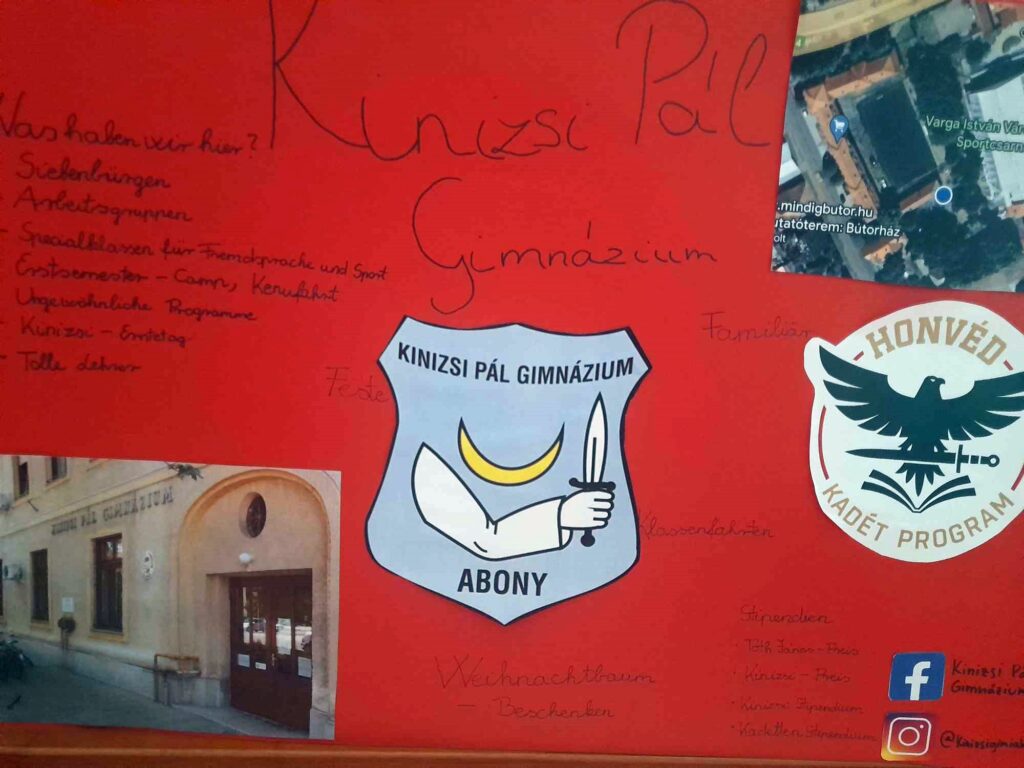 Kinizsi Pál
Gimnázium
Was haben wir hier?
- Siebenbürgen
- Arbeitsgruppen
- Specialklassen für Fremdsprache und Sport
- Erstsemester - Camp, Kenufahrt
- Ungewöhnliche Programme
- Kinizsi - Erntetag
- Tolle Lehrer
Varga István Vár
Sportcsarn
.mindigbutor.hu
utatóterem: Bútorház
olt
Familiär
Feste
KINIZSI PÁL GIMNÁZIUM
ABONY
HONVÉD
KADÉT PROGRAM
KINIZSI PÁL GIMNÁZIUM
Klassenfahrten
Weihnachtbaum
- Beschenken
Stipendien
· Tóth János - Preis
· Kinizsi - Preis
· Kinizsi Stipendium
· Kadetten Stipendium
Kinizsi Pá
Gimnázium